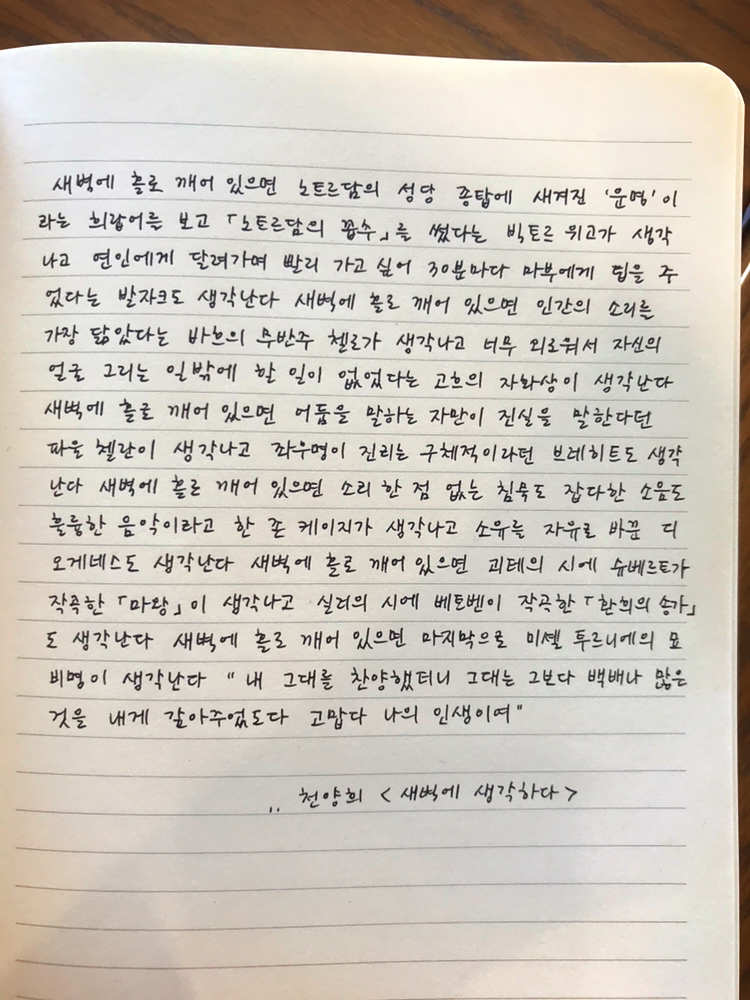 새벽에 홀로 깨어 있으면 노트르담의 성당 종탑에 새겨진 '운명'이
라는 희랍어를 보고 「노트르담의 꼽추」를 썼다는 빅토르 위고가 생각
나고 연인에게 달려가며 빨리 가고 싶어 30분마다 마부에게 팁을 주
었다는 발자크도 생각난다 새벽에 홀로 깨어 있으면 인간의 소리를
가장 닮았다는 바흐의 무반주 첼로가 생각나고 너무 외로워서 자신의
얼굴 그리는 일밖에 할 일이 없었다는 고흐의 자화상이 생각난다
새벽에 홀로 깨어 있으면 어둠을 말하는 자만이 진실을 말한다던
파울 첼란이 생각나고 좌우명이 진리는 구체적이라던 브레히트도 생각
난다 새벽에 홀로 깨어 있으면 소리 한 점 없는 침묵도 잡다한 소음도
훌륭한 음악이라고 한 존 케이지가 생각나고 소유를 자유로 바꾼 디
오게네스도 생각난다 새벽에 홀로 깨어 있으면 괴테의 시에 슈베르트가
작곡한 「마왕」이 생각나고 실러의 시에 베토벤이 작곡한 「환희의 송가」
도 생각난다 새벽에 홀로 깨어 있으면 마지막으로 미셸 투르니에의 묘
비명이 생각난다 "내 그대를 찬양했더니 그대는 그보다 백배나 많은
것을 내게 갚아주었도다 고맙다 나의 인생이여"
.. 천양희 <새벽에 생각하다>